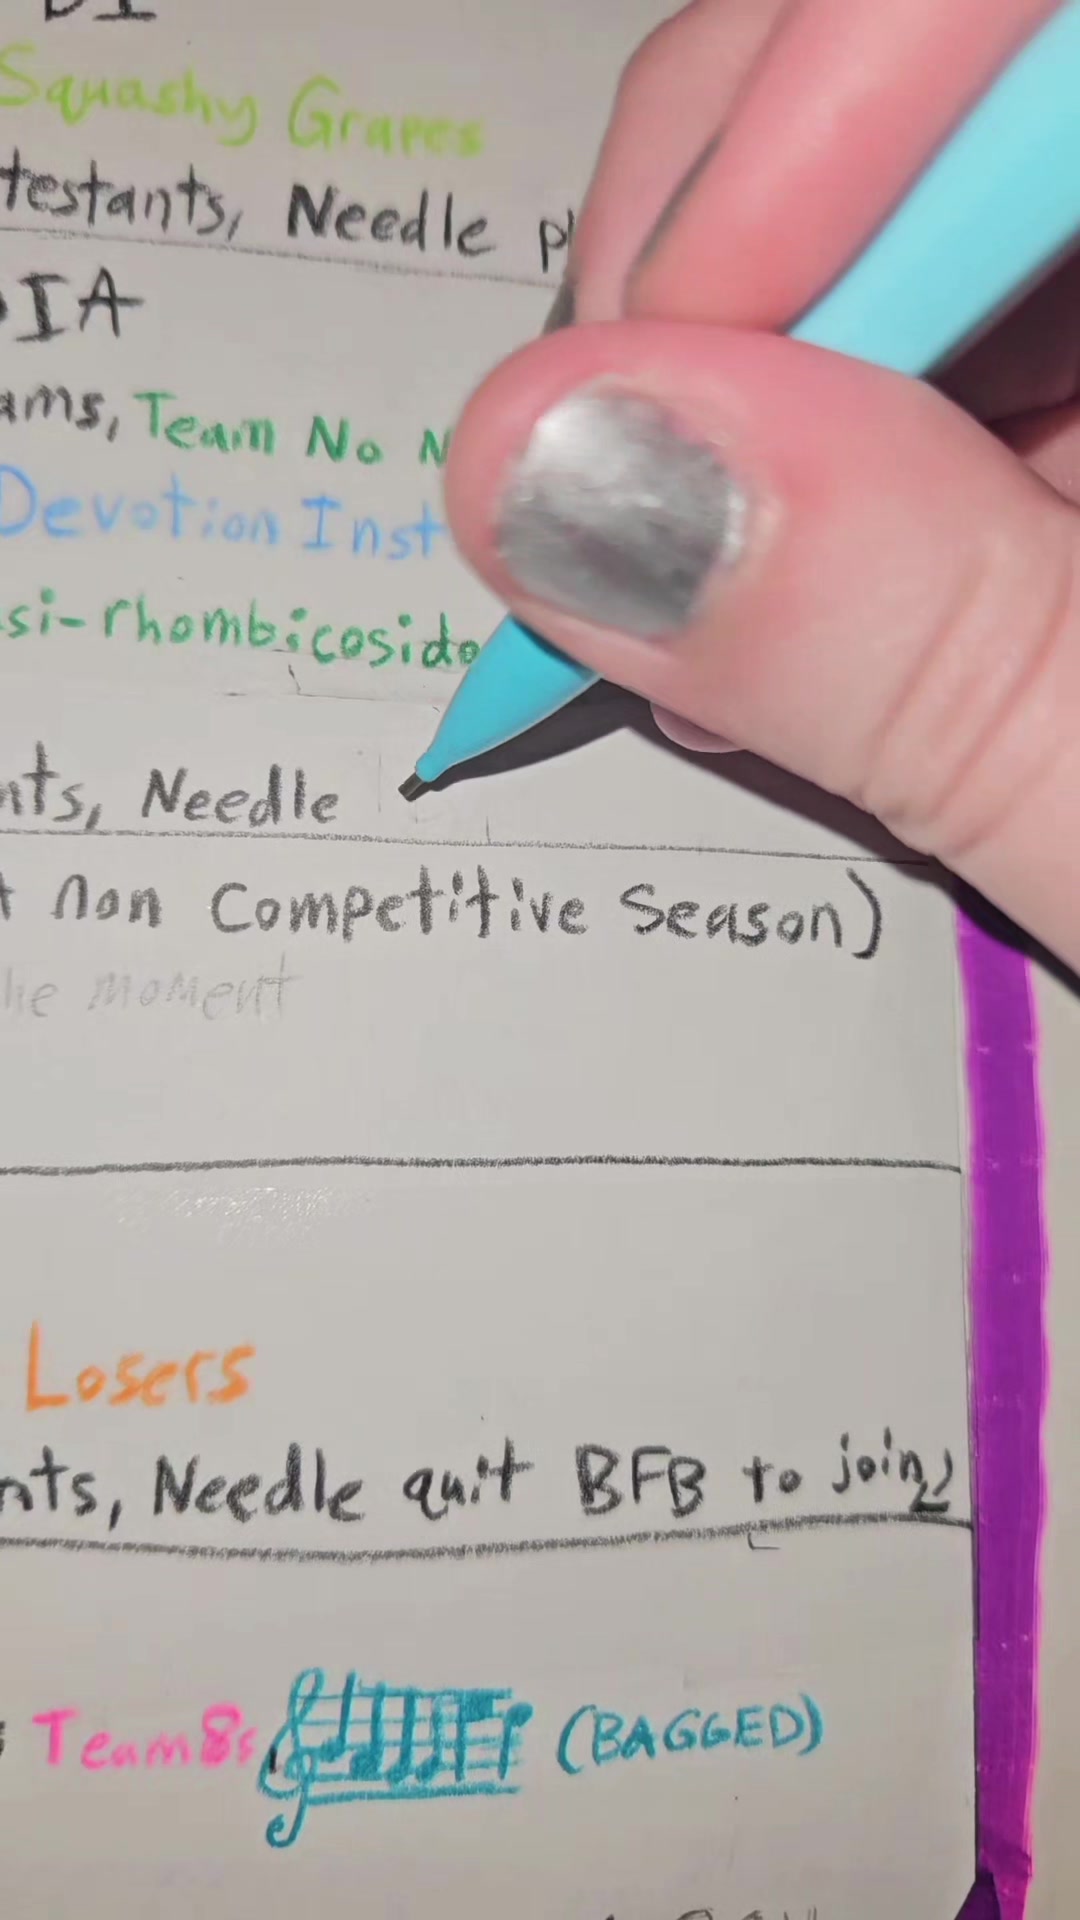 Squashy Grapes
testants, Needle
IA
ams, Team No
Devotion Inst
si-rhombicosido
nts, Needle
non Competitive Season)
he moment
Losers
nts, Needle quit BFB to join
Team8s, (BAGGED)